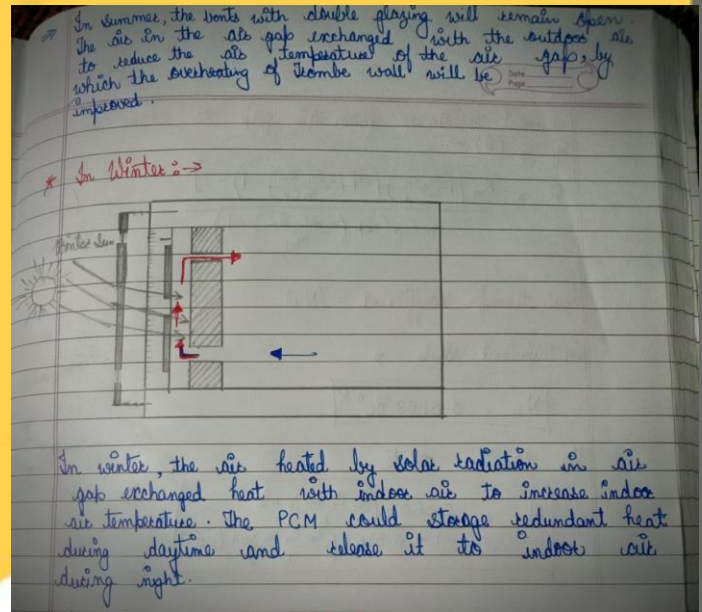 In summer, the vents with double glazing will remain open.
The air in the air gap exchanged with the outdoor air
to reduce the air temperature of the air gap, by
which the overheating of Trombe wall will be
Date
Page
improved.
* In Winter :→
Winter Sun
In winter, the air heated by solar radiation in air
gap exchanged heat with indoor air to increase indoor
air temperature. The PCM could storage redundant heat
during daytime and release it to indoor air
during night.